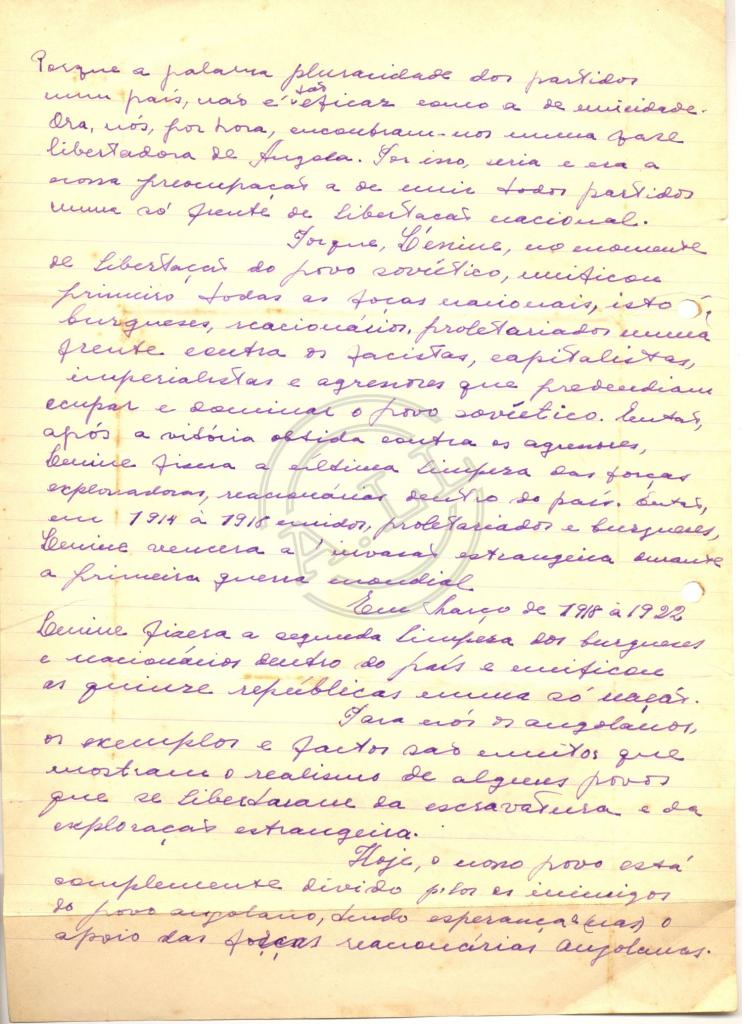 Porque a palavra pluracidade dos partidos
num país, não é tão eficaz como a de unicidade.
Ora, nós, por hora, encontram-nos numa faze
libertadora de Angola. Por isso, seria e era a
nossa preocupação a de unir todos partidos
numa só frente de Libertação nacional.
Porque, Lénine, no momento
de Libertação do povo soviético, unificou
primeiro, todas as focas nacionais, isto é,
burgueses, reacionários, proletariados numa
frente contra os facistas, capitalistas,
imperialistas e agresores que predendiam
ocupar e dominar o povo soviético. Então,
após a vitória obtida contra os agresores,
Lenine fizera a última limpeza das forças
exploradoras, reacionárias dentro do país. Então,
em 1914 à 1918 unidos, proletariados e burgueses,
Lenine vencera a invasão estrangeira durante
a primeira guerra mondial
Em Março de 1918 à 1922
Lenine fizera a segunda limpeza dos burgueses
e reacionários dentro do país e unificou
as quinze repúblicas numa só nação.
Para nós os angolanos,
os exemplos e factos são muitos que
mostram o realismo de alguns povos
que se libertaram da escravatura e da
exploração estrangeira.
Hoje, o nosso povo está
complemente divido pelos os inimigos
do povo angolano, tendo esperança (nas) o
apoio das forças reacionárias angolanas.
A.L.